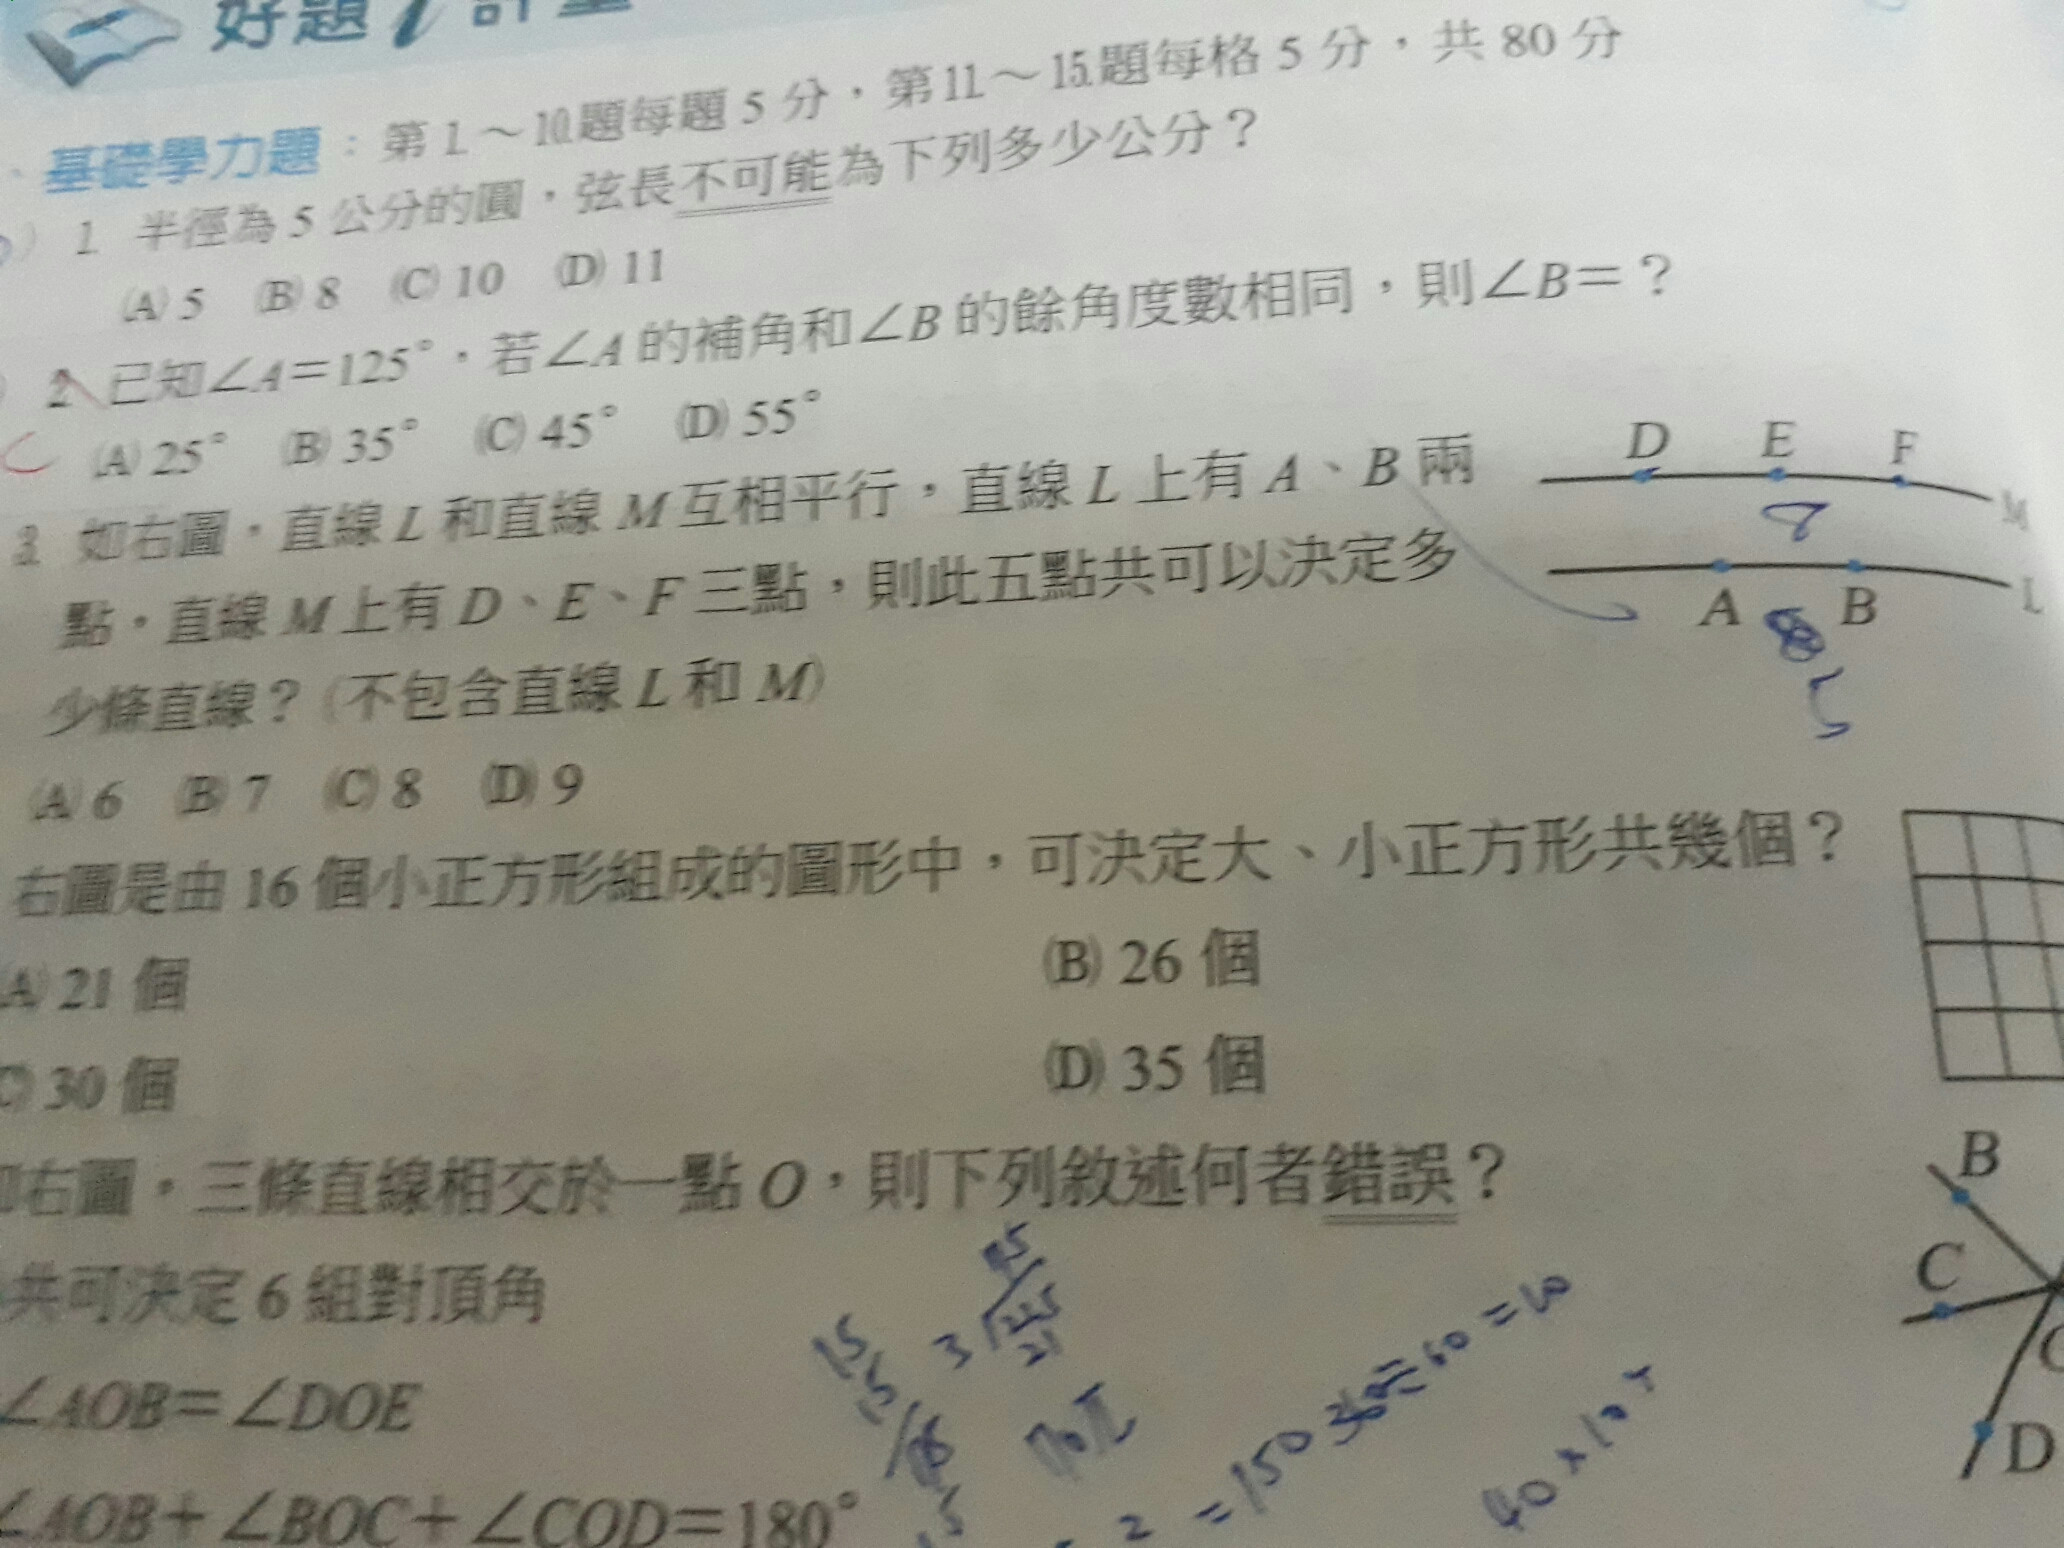 好題
基礎學力題：第1.～10.題每題5分，第11.～15.題每格5分，共80分
1. 半徑為5公分的圓，弦長不可能為下列多少公分？
(A) 5 (B) 8 (C) 10 (D) 11
2. 已知∠A＝125°，若∠A的補角和∠B的餘角度數相同，則∠B＝？
C (A) 25° (B) 35° (C) 45° (D) 55°
3. 如右圖，直線L和直線M互相平行，直線L上有A、B兩
點，直線M上有D、E、F三點，則此五點共可以決定多
少條直線？(不包含直線L和M)
(A) 6 (B) 7 (C) 8 (D) 9
D E F
M
A B
L
右圖是由16個小正方形組成的圖形中，可決定大、小正方形共幾個？
(A) 21個 (B) 26個
(C) 30個 (D) 35個
如右圖，三條直線相交於一點O，則下列敘述何者錯誤？
共可決定6組對頂角
∠AOB＝∠DOE
∠AOB＋∠BOC＋∠COD＝180°
B
C
D